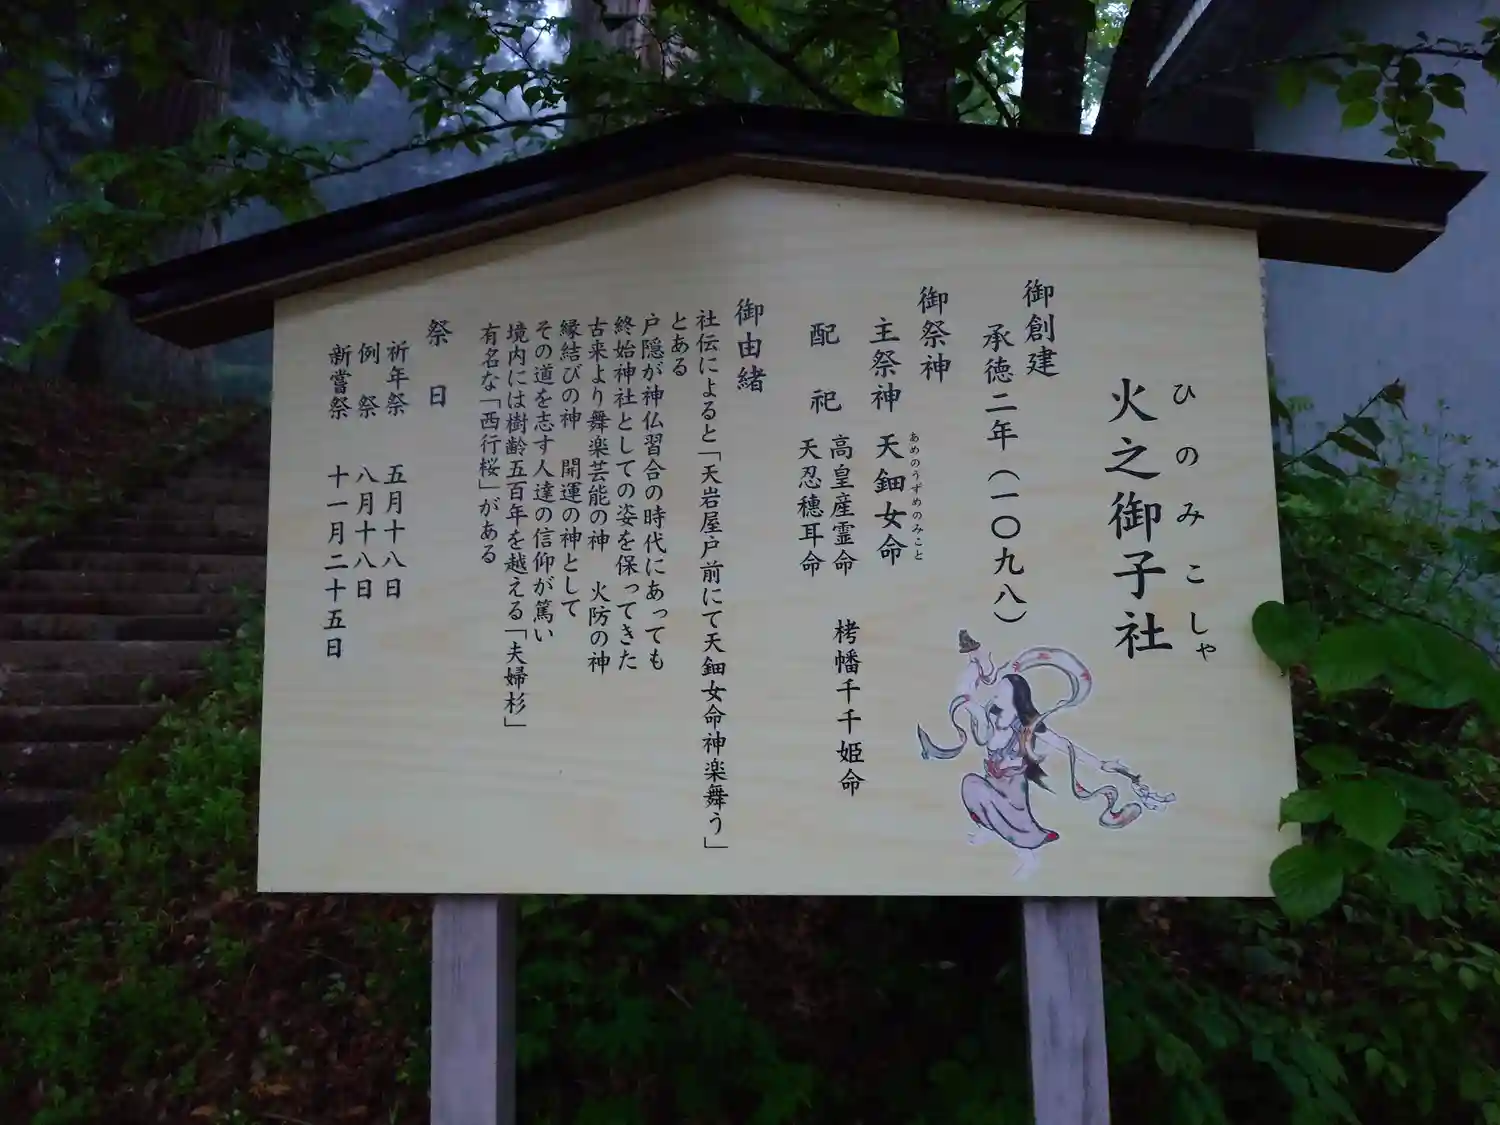 ひのみこしゃ
火之御子社
御創建
承徳二年（一〇九八）
御祭神
あめのうずめのみこと
主祭神 天鈿女命
配祀 高皇産霊命 栲幡千千姫命
天忍穗耳命
御由緒
社伝によると「天岩屋戸前にて天鈿女命神楽舞う」
とある
戸隠が神仏習合の時代にあっても
終始神社としての姿を保ってきた
古来より舞楽芸能の神 火防の神
縁結びの神 開運の神として
その道を志す人達の信仰が篤い
境内には樹齢五百年を越える「夫婦杉」
有名な「西行桜」がある
祭日
祈年祭 五月十八日
例祭 八月十八日
新嘗祭 十一月二十五日